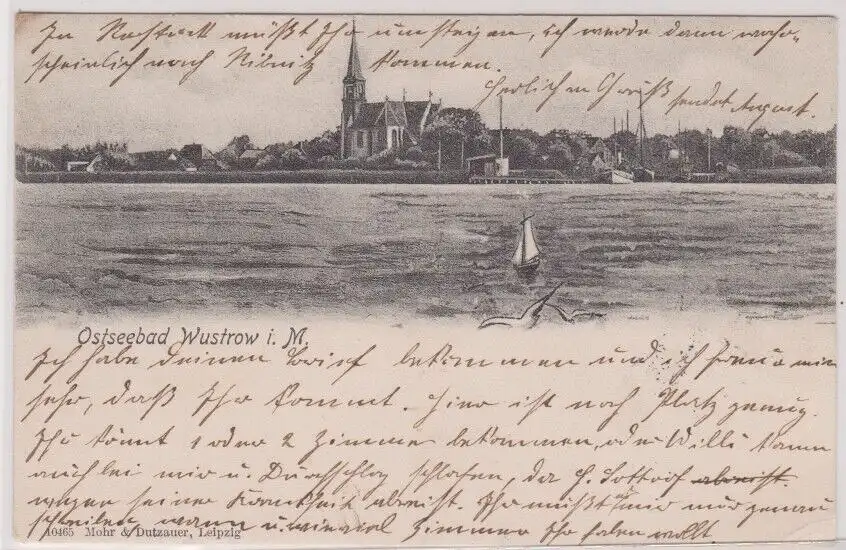 In Rostock müßt Ihr umsteigen, ich werde dann wahr-
scheinlich nach Ribnitz kommen.
Herzlichen Gruß sendet August.
Ostseebad Wustrow i. M.
Ich habe deinen Brief bekommen und ich freue mich
sehr, daß Ihr kommt. Hier ist noch Platz genug.
Ihr könnt 1 oder 2 Zimmer bekommen, oder Willi kann
auch bei mir u. schlafen, da H.
wegen seiner Krankheit abreist. Ihr müßt mir nur genau
schreiben, wann u. wieviel Zimmer Ihr haben wollt.
10465 Mohr & Dutzauer, Leipzig